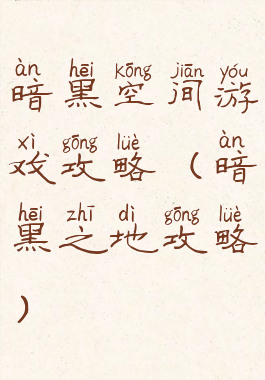 àn hēi kōng jiān yóu
暗黑空间游
xì gōng lüè àn
戏攻略（暗
hēi zhī dì gōng lüè
黑之地攻略
）